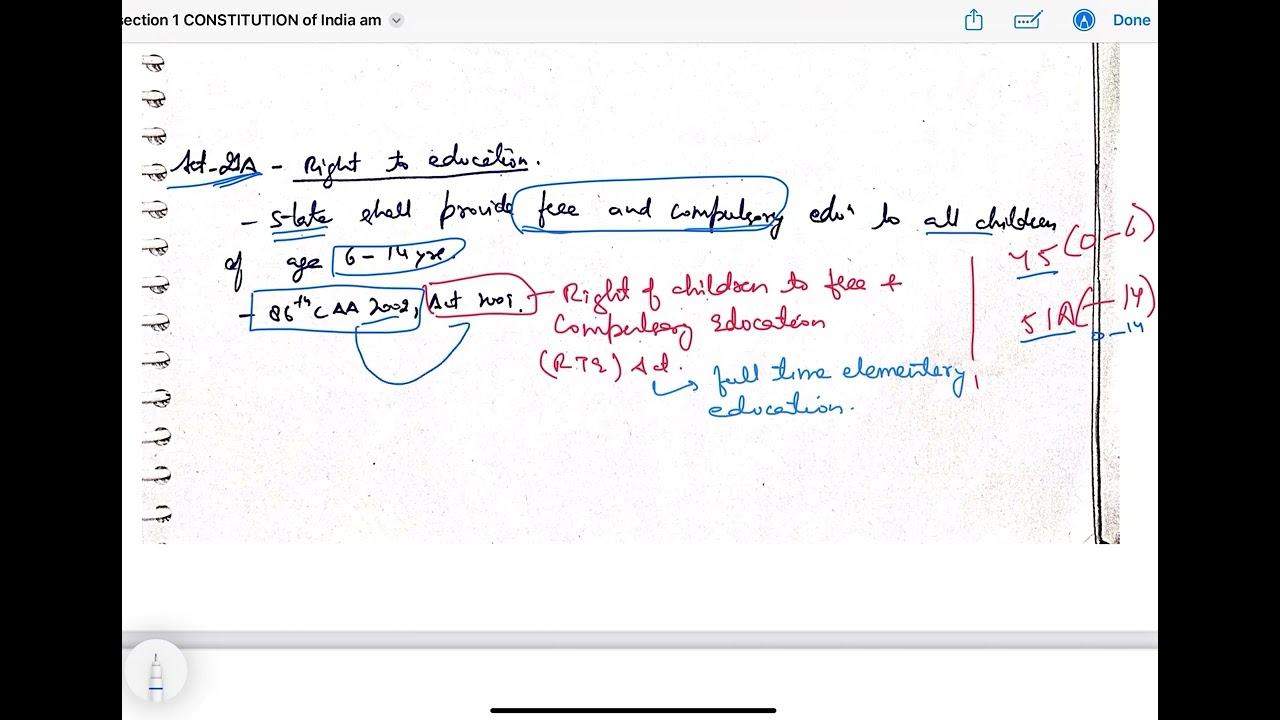 section 1 CONSTITUTION of India am
Done
Art-21A - Right to education.
- State shall provide free and compulsory edun to all children
of age 6-14 yrs.
45 (0-6)
- 86th CAA 2002, Act 2009. - Right of children to free +
51A (-14)
0-14
Compulsory Education
(RTE) Act.
full time elementary
education.